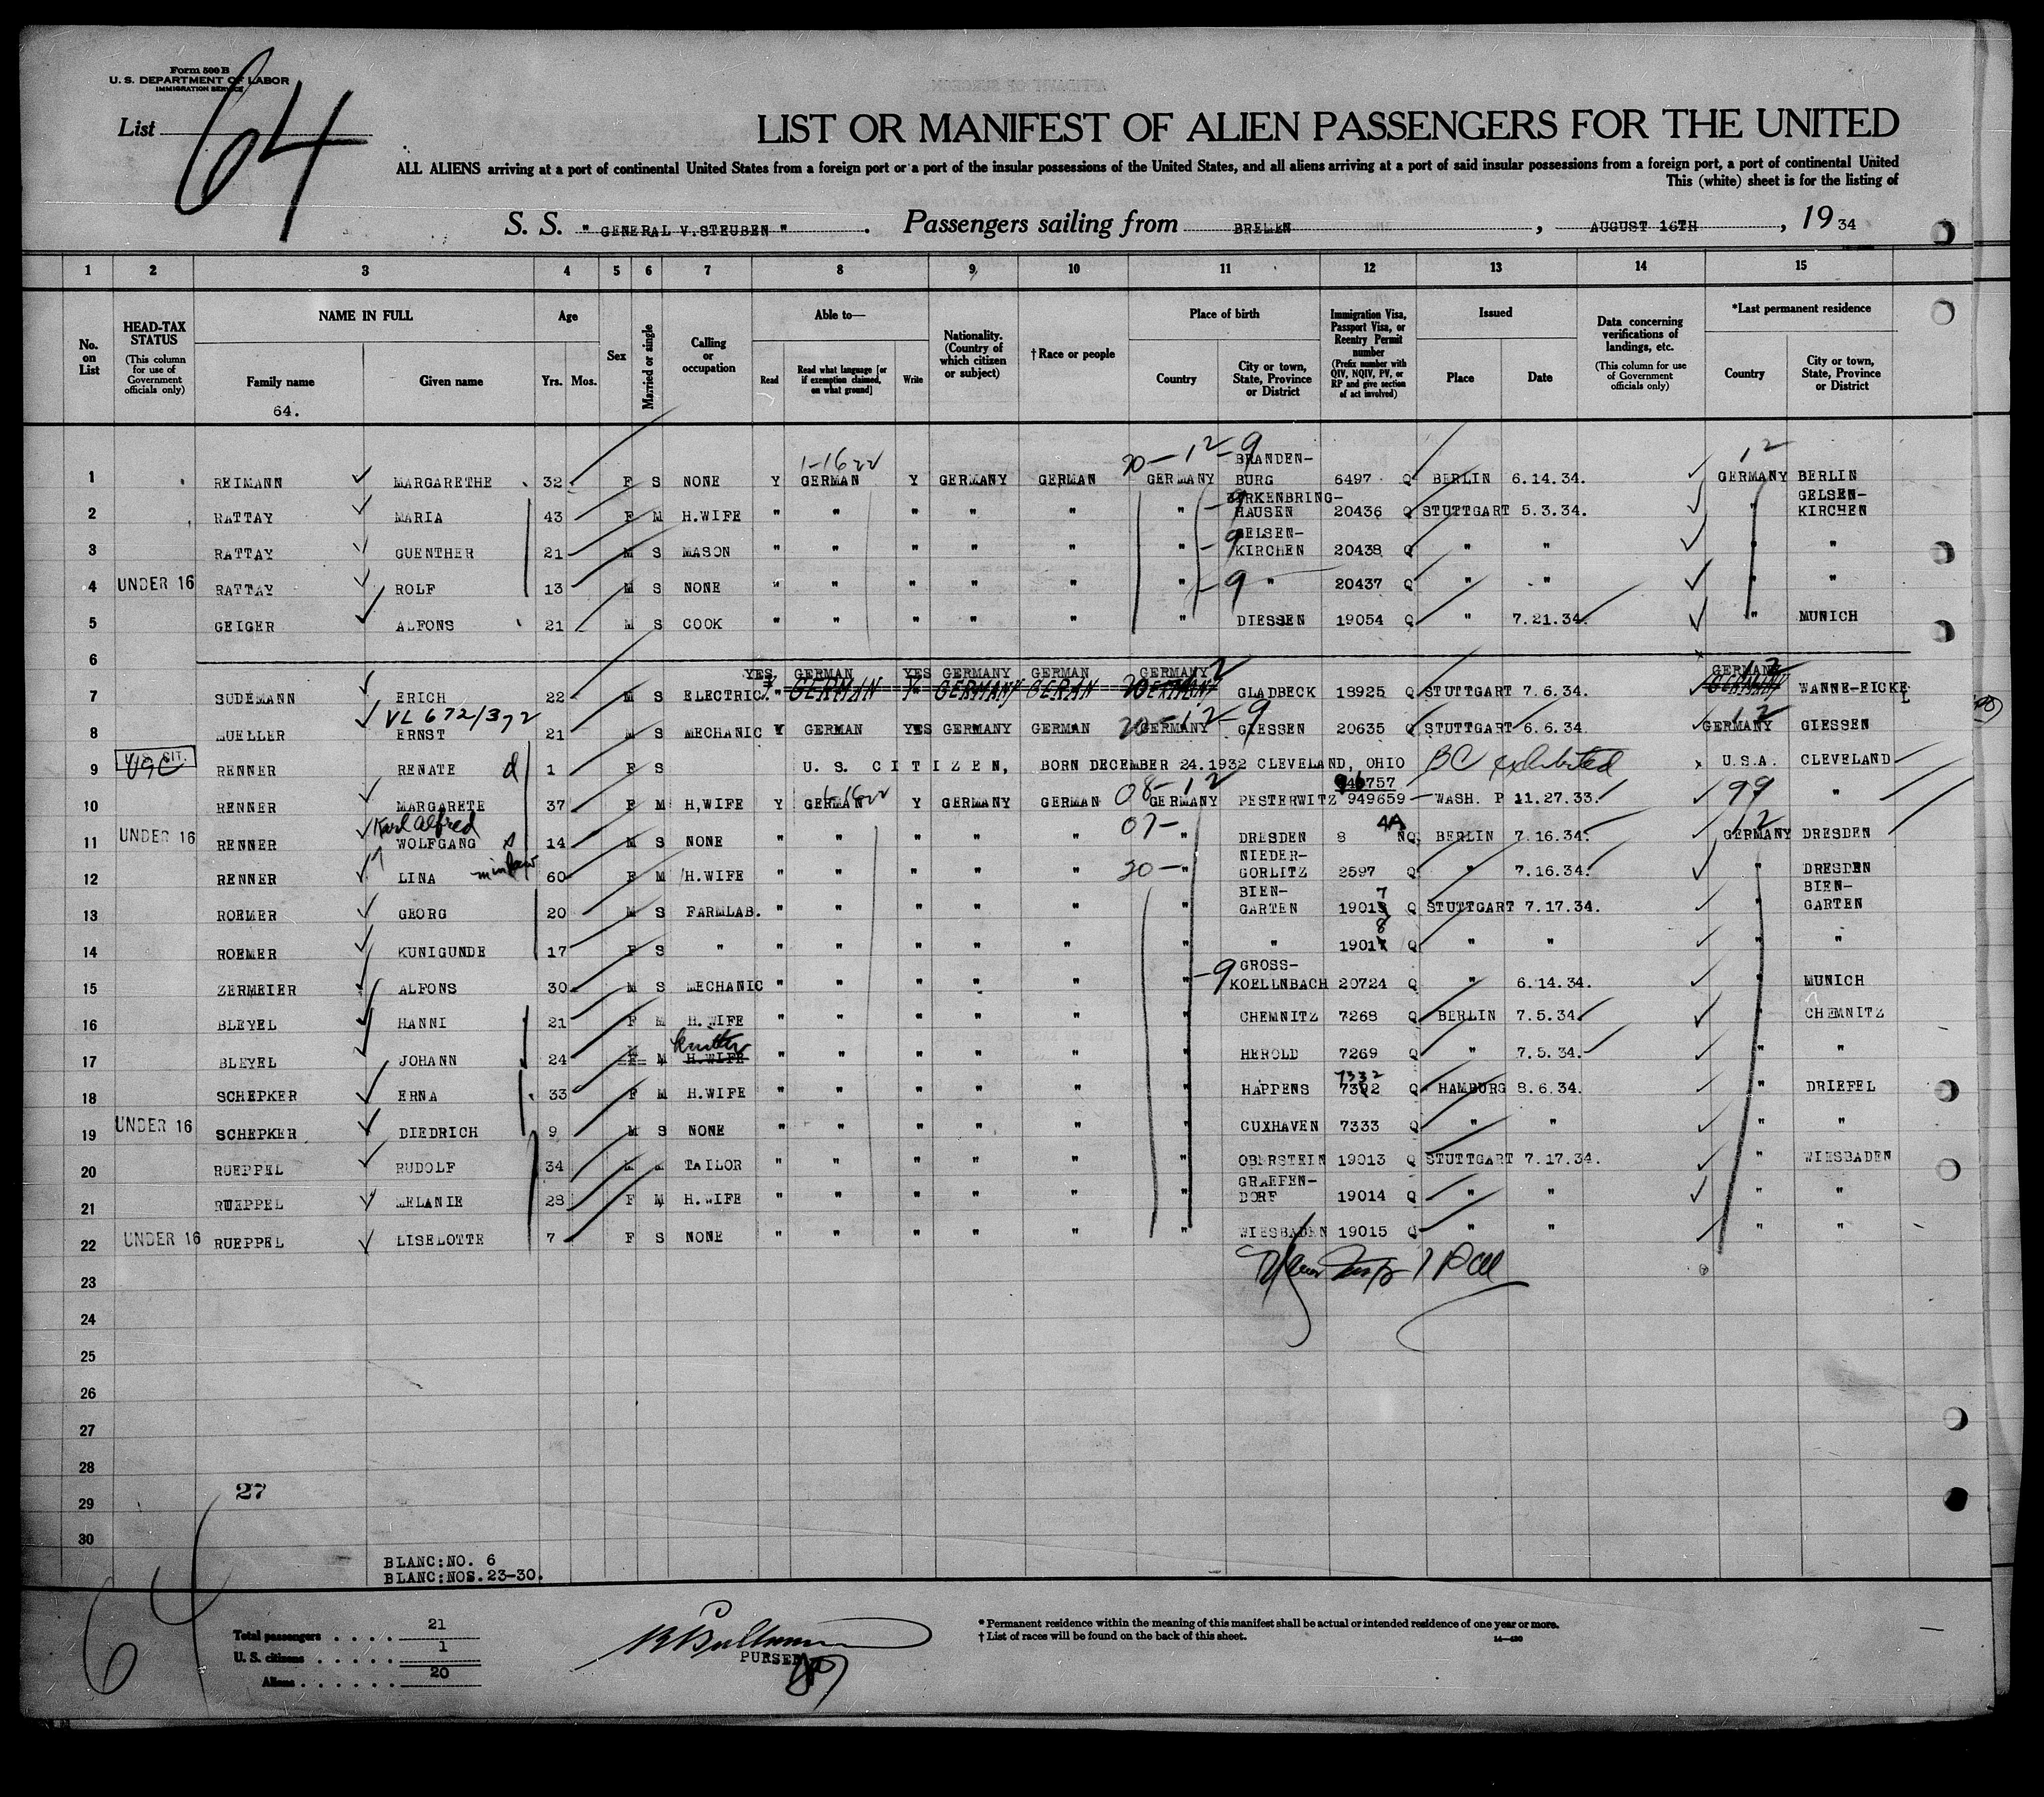 Form 500 B
U. S. DEPARTMENT OF LABOR
IMMIGRATION SERVICE
List 64
LIST OR MANIFEST OF ALIEN PASSENGERS FOR THE UNITED
ALL ALIENS arriving at a port of continental United States from a foreign port or a port of the insular possessions of the United States, and all aliens arriving at a port of said insular possessions from a foreign port, a port of continental United
This (white) sheet is for the listing of
S. S. "GENERAL V.STEUBEN". Passengers sailing from BREMEN, AUGUST 16TH, 19 34
1 2 3 4 5 6 7 8 9 10 11 12 13 14 15
No. on List
HEAD-TAX STATUS (This column for use of Government officials only)
NAME IN FULL
Family name
64.
Given name
Age
Yrs. Mos.
Sex
Married or single
Calling or occupation
Able to—
Read
Read what language [or if exemption claimed, on what ground]
Write
Nationality. (Country of which citizen or subject)
†Race or people
Place of birth
Country
City or town, State, Province or District
Immigration Visa, Passport Visa, or Reentry Permit number (Prefix number with QIV, NQIV, PV, or RP and give section of act involved)
Issued
Place
Date
Data concerning verifications of landings, etc. (This column for use of Government officials only)
*Last permanent residence
Country
City or town, State, Province or District
1-16 20-12-9 12
1 REIMANN MARGARETHE 32 F S NONE Y GERMAN Y GERMANY GERMAN GERMANY BRANDEN-BURG 6497 Q BERLIN 6.14.34. GERMANY BERLIN
2 RATTAY MARIA 43 F M H.WIFE " " " " " " -9 HAUSEN 20436 Q STUTTGART 5.3.34. " GELSEN-KIRCHEN
3 RATTAY GUENTHER 21 M S MASON " " " " " " -9 GELSEN-KIRCHEN 20438 Q " " " "
4 UNDER 16 RATTAY ROLF 13 M S NONE " " " " " " -9 " 20437 Q " " " "
5 GEIGER ALFONS 21 M S COOK " " " " " " DIESSEN 19054 Q " 7.21.34. " MUNICH
6
YES GERMAN YES GERMANY GERMAN GERMANY GERMANY
7 SUDEMANN ERICH 22 M S ELECTRIC. " GERMAN Y GERMANY GERAN 20 GERMANY GLADBECK 18925 Q STUTTGART 7.6.34. GERMANY WANNE-EICKEL
VL 672/372
8 MUELLER ERNST 21 M S MECHANIC Y GERMAN YES GERMANY GERMAN 20-12-9 GERMANY GIESSEN 20635 Q STUTTGART 6.6.34. 12 GERMANY GIESSEN
9 RENNER RENATE d 1 F S U. S. C I T I Z E N, BORN DECEMBER 24.1932 CLEVELAND, OHIO BC exhibited x U.S.A. CLEVELAND
10 RENNER MARGARETE 37 F M H,WIFE Y GERMAN Y GERMANY GERMAN 08-12 GERMANY PESTERWITZ 949659 WASH. P 11.27.33. 99 "
Karl Alfred
11 UNDER 16 RENNER WOLFGANG 14 M S NONE " " " " " 07- " DRESDEN 8 4A NQ. BERLIN 7.16.34. 12 GERMANY DRESDEN
12 RENNER LINA 60 F M H.WIFE " " " " " 20- " NIEDER-GORLITZ 2597 Q " 7.16.34. " DRESDEN
13 ROEMER GEORG 20 M S FARMLAB. " " " " " " BIEN-GARTEN 19017 Q STUTTGART 7.17.34. " BIEN-GARTEN
14 ROEMER KUNIGUNDE 17 F S " " " " " " " " 19018 Q " " " "
15 ZERMEIER ALFONS 30 M S MECHANIC " " " " " " -9 GROSS-KOELLNBACH 20724 Q " 6.14.34. " MUNICH
16 BLEYEL HANNI 21 F M H.WIFE " " " " " " CHEMNITZ 7268 Q BERLIN 7.5.34. " CHEMNITZ
17 BLEYEL JOHANN 24 M H.WIFE " " " " " " HEROLD 7269 Q " 7.5.34. " "
18 SCHEPKER ERNA 33 F M H.WIFE " " " " " " HAPPENS 7332 Q HAMBURG 8.6.34. " DRIEFEL
19 UNDER 16 SCHEPKER DIEDRICH 9 M S NONE " " " " " " CUXHAVEN 7333 Q " " " "
20 RUEPPEL RUDOLF 34 M M TAILOR " " " " " " OBERSTEIN 19013 Q STUTTGART 7.17.34. " WIESBADEN
21 RUEPPEL MELANIE 28 F M H.WIFE " " " " " " GRAEFEN-DORF 19014 Q " " " "
22 UNDER 16 RUEPPEL LISELOTTE 7 F S NONE " " " " " " WIESBADEN 19015 Q " " " "
23
24
25
26
27
28
29
30
27
BLANC:NO. 6
BLANC:NOS.23-30.
64
Total passengers . . . . 21
U. S. citizens . . . . . 1
Aliens . . . . . . 20
PURSER
* Permanent residence within the meaning of this manifest shall be actual or intended residence of one year or more.
† List of races will be found on the back of this sheet.
14—430